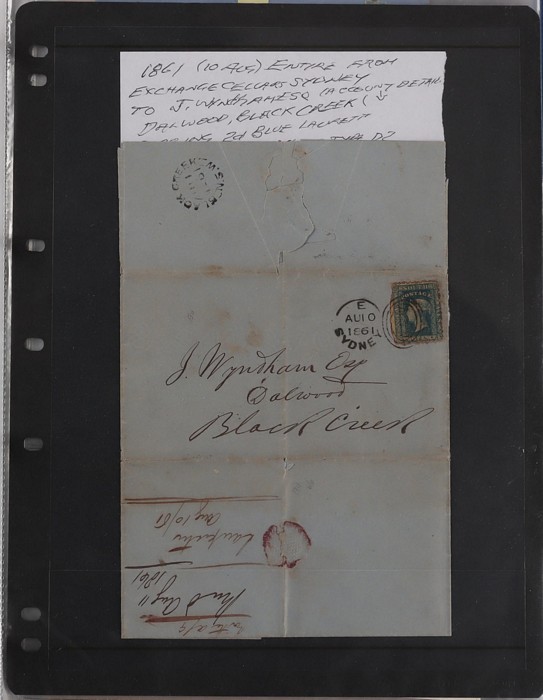 1861 (10 AUG) ENTIRE FROM
EXCHANGE CELLARS SYDNEY
TO J. WYNDHAM ESQ (ACCOUNT DETAIL
DALWOOD, BLACK CREEK (
2d BLUE LAUREATE
TYPE D2
BLACK.CREEK N.S.W
E
AU 10
1861
SYDNEY
POSTAGE
J. Wyndham Esq
Dalwood
Black Creek
Aug 10/61
Aug 11
1861